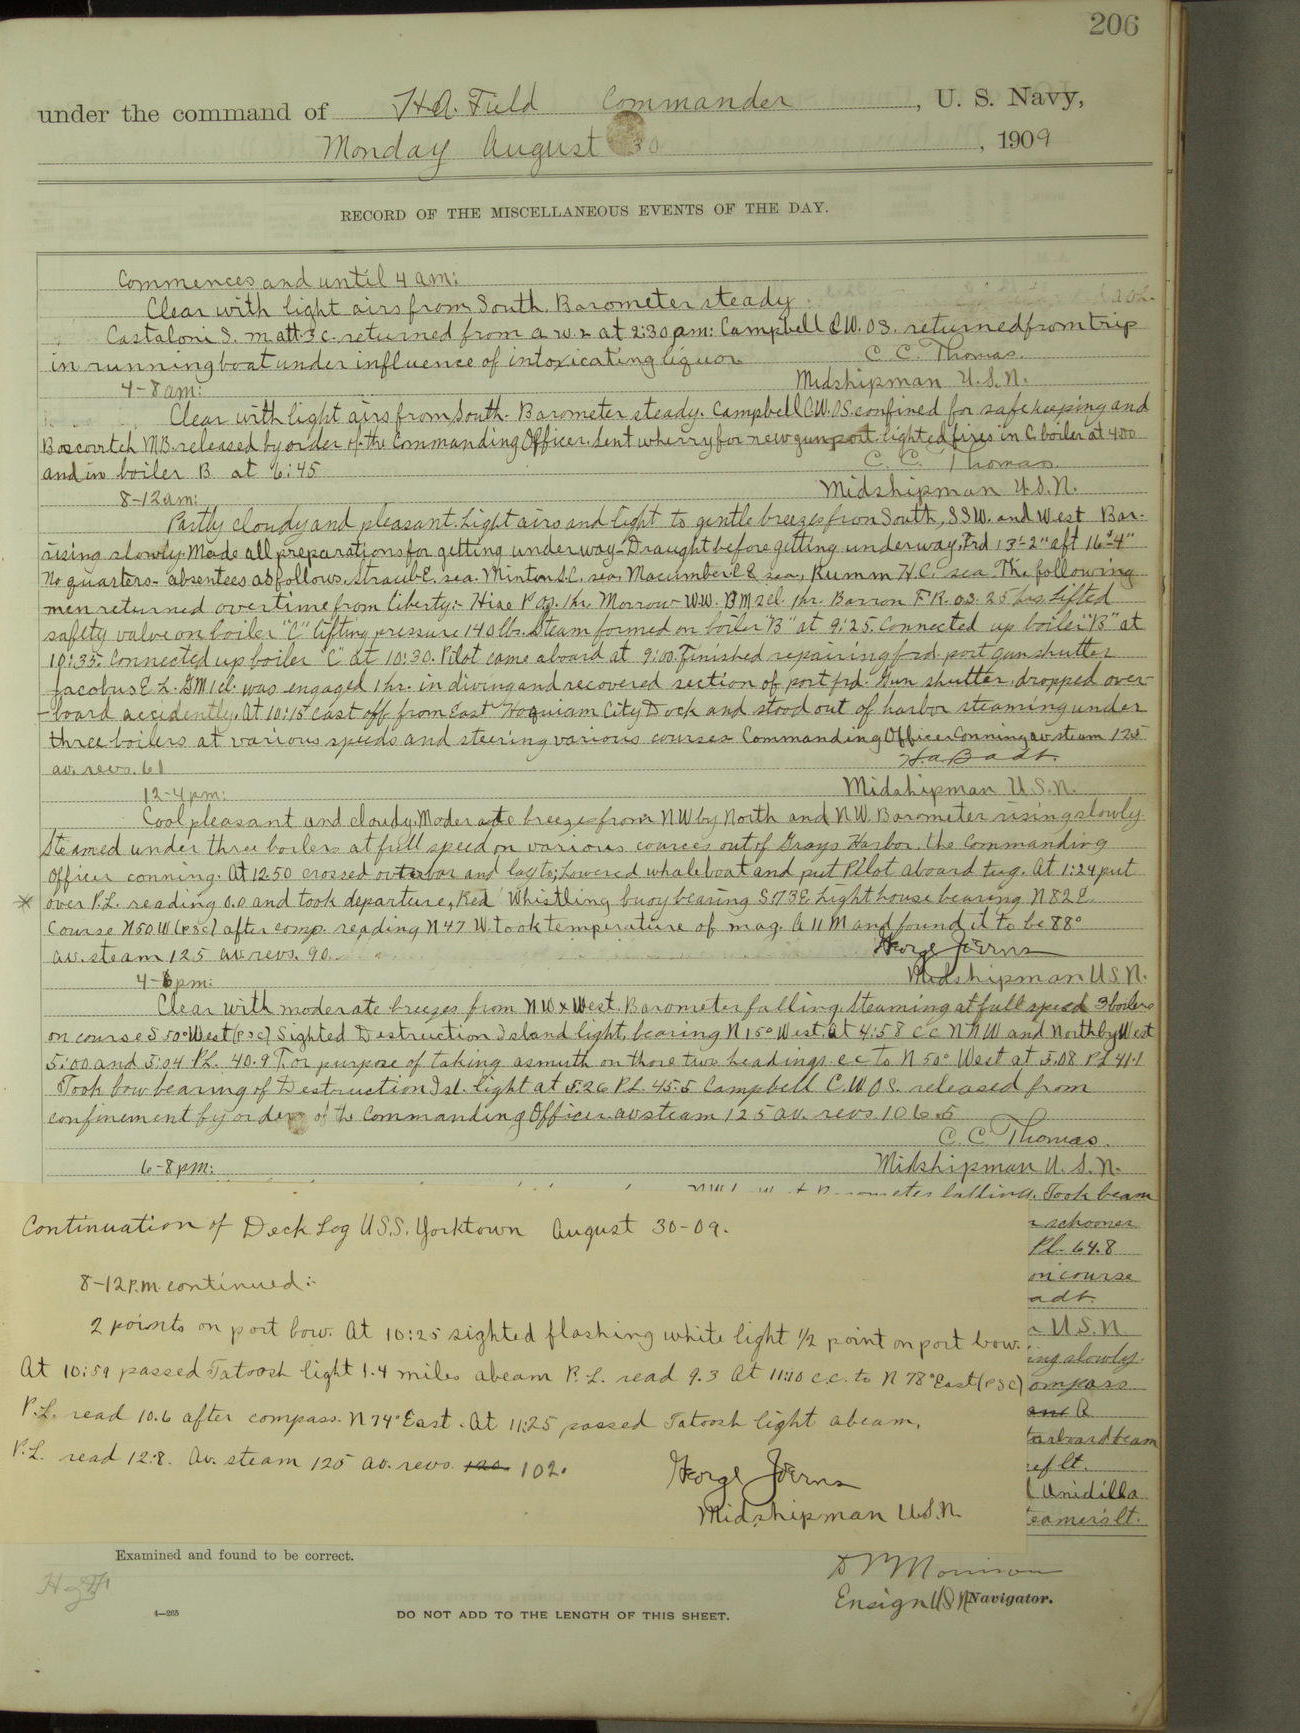 206
under the command of H.A. Field Commander, U. S. Navy,
Monday August 30, 1909
RECORD OF THE MISCELLANEOUS EVENTS OF THE DAY.
Commences and until 4 am:
Clear with light airs from South. Barometer steady.
Castaloni S. matt. 3c. returned from a.w.l. at 2:30 am: Campbell C.W. O.S. returned from trip
in running boat under influence of intoxicating liquor
C. C. Thomas.
Midshipman U.S.N.
4-8 am:
Clear with light airs from South. Barometer steady. Campbell C.W. O.S. confined for safe keeping and
M.B. released by order of the Commanding Officer. Sent wherry for new gun port. lighted fires in C boiler at 4:00
and in boiler B at 6:45
C. C. Thomas
Midshipman U.S.N.
8-12 am:
Partly cloudy and pleasant. Light airs and light to gentle breezes from South, S.S.W. and West Bar.
rising slowly. Made all preparations for getting underway - Draught before getting underway, Frd 13'-2" aft 16'-4"
No quarters - absentees as follows. Straub E. sea. Minton S.C. sea, Macumber sea, Rumm H.C. sea The following
men returned overtime from liberty:- Hise P. 1hr. Morrow W.W. B M 2cl. 1hr. Barron F.R. O.S. 25 hrs. Lifted
safety valve on boiler "C" lifting pressure 140 lbs. Steam formed on boiler "B" at 9:25. Connected up boiler "B" at
10:35. Connected up boiler "C" at 10:30. Pilot came aboard at 9:00. Finished repairing frd port gun shutter
Jacobus E.L. G M 1cl. was engaged 1 hr. in diving and recovered section of port frd. Gun shutter, dropped over-
-board accidently. At 10:15 cast off from East Hoquiam City Dock and stood out of harbor steaming under
three boilers at various speeds and steering various courses Commanding Officer Conning av steam 125
av. revs. 61
H.A. Badt.
Midshipman U.S.N.
12-4 pm:
Cool pleasant and cloudy. Moderate breezes from NW by North and N.W. Barometer rising slowly.
Steamed under three boilers at full speed on various cources out of Grays Harbor. the Commanding
Officer conning. At 12:50 crossed outer bar and lay to; Lowered whaleboat and put Pilot aboard tug. At 1:24 put
* over P.L. reading 0.0 and took departure, Red Whistling buoy bearing S 73 E Lighthouse bearing N 82 E.
Course N 50 W (psc) after comp. reading N 47 W. took temperature of mag. A 11 M and found it to be 88°
av. steam 125 av. revs. 90.
George Joerns
Midshipman U.S.N.
4-6 pm:
Clear with moderate breezes from NW x West. Barometer falling. Steaming at full speed 3 boilers
on course S 50° West (psc) Sighted Destruction Island light, bearing N 15° West. At 4:58 c c NNW and North by West
5:00 and 5:04 PL. 40.9 For purpose of taking asmuth on those two headings. c c to N 50° West at 5:08 PL 41.1
Took bow bearing of Destruction Isl. light at 5:26 PL. 45.5 Campbell C.W O.S. released from
confinement by order of the Commanding Officer. av steam 125 av. revs. 106.5
C. C Thomas.
Midshipman U. S. N.
6-8 pm:
Barometer falling. Took beam
schooner
PL. 64.8
on course
U.S.N
slowly.
ompass
starboard beam
lt.
Unidilla
eamer's lt.
Continuation of Deck Log U.S.S. Yorktown August 30-09.
8-12 P.M. continued:-
2 points on port bow. At 10:25 sighted flashing white light 1/2 point on port bow.
At 10:59 passed Tatoosh light 1.4 miles abeam P.L. read 9.3 At 11:10 c.c. to N 78° East (PSC)
P.L. read 10.6 after compass. N 74° East. At 11:25 passed Tatoosh light abeam,
P.L. read 12.8. Av. steam 125 av. revs. 120 102.
George Joerns
Midshipman U.S.N.
Examined and found to be correct.
D M Morrison
Ensign U S N Navigator.
4—265
DO NOT ADD TO THE LENGTH OF THIS SHEET.